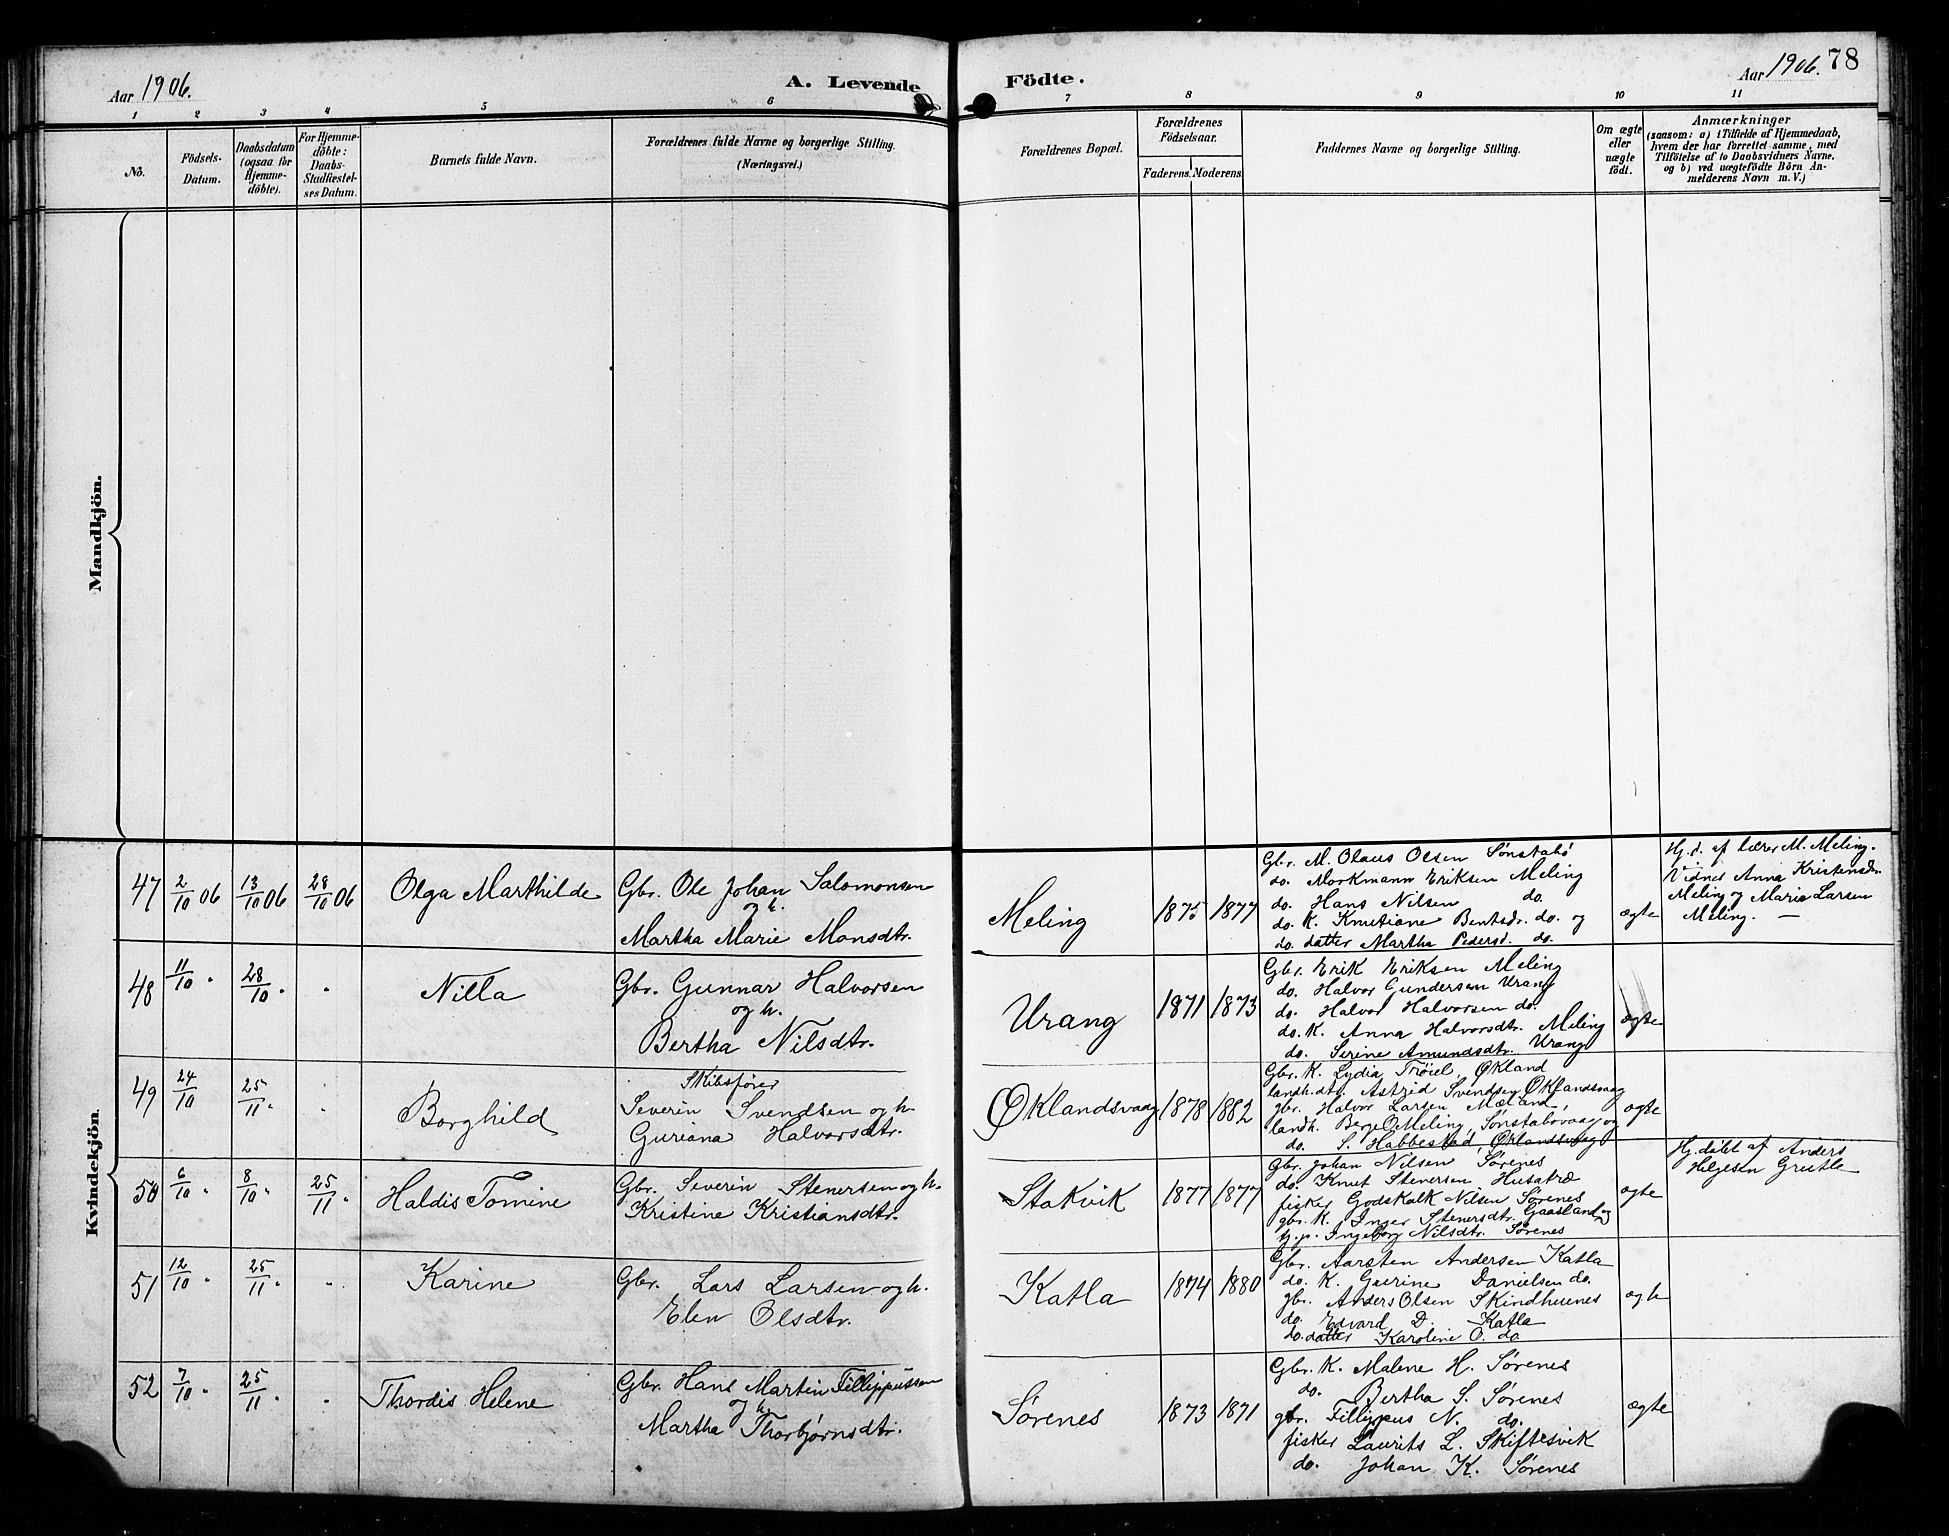 Aar 1906.
A. Levende
Födte.
Aar 1906. 78
1 2 3 4 5 6 7 8 9 10 11
No.
Födsels-
Datum.
Daabsdatum
(ogsaa for
Hjemme-
döbte).
For Hjemme-
döbte:
Daabs-
Stadfæstel-
ses Datum.
Barnets fulde Navn.
Forældrenes fulde Navne og borgerlige Stilling.
(Næringsvei.)
Forældrenes Bopæl.
Forældrenes
Födselsaar.
Faderens. Moderens.
Faddernes Navne og borgerlige Stilling.
Om ægte
eller
uægte
födt.
Anmærkninger
(saasom: a) i Tilfælde af Hjemmedaab,
hvem der har forrettet samme, med
Tilföielse af to Daabsvidners Navne,
og b) ved uægtefödte Börn An-
melderens Navn m. V.)
Mandkjön.
Kvindekjön.
47 2/10 06 13/10 06 28/10 06
Olga Marthilde
Gbr. Ole Johan Salomonsen
og h.
Martha Marie Monsdtr.
Meling
1875 1877
Gbr. M. Olaus Olsen Sønstabö
do. Morkmann Eriksen Meling
do. Hans Nilsen do.
do. K. Knutiane Bentsdr. do. og
do. datter Martha Pedersd. do.
ægte
Hj.d. af lærer M. Meling.
Vidnes Anna Kristensdr.
Meling og Marie Larsen
Meling. —
48 11/10 " 28/10 " "
Nilla
Gbr. Gunnar Halvorsen
og h.
Bertha Nilsdtr.
Urang
1871 1873
Gbr. Erik Eriksen Meling
do. Halvor Gundersen Urang
do. Halvor Halvorsen do.
do. K. Anna Halvorsdtr. Meling
do. Serine Amundsdtr. Urang
ægte
49 24/10 25/11 " "
Borghild
Skibsfører
Severin Svendsen og h.
Guriana Halvorsdtr.
Øklandsvaag
1878 1882
Gbr. K. Lydia Trøiel, Økland
landh.dtr. Astrid Svendsen Øklandsvaag
gbr. Halvor Larsen Mæland
landh. Berge O Meling, Sønstabøvaag og
do. S. Habbestad, Øklandsvaag
ægte
50 6/10 " 8/10 " 25/11 "
Haldis Tomine
Gbr. Severin Stenersen og h.
Kristine Kristiansdtr.
Stokvik
1877 1877
Gbr. Johan Nilsen Sørenes
do. Knut Stenersen Husatræ
fisker Godskalk Nilsen Sørenes
gbr. K. Inger Stenersdtr. Gaasland og
tj.p. Ingeborg Nilsdtr. Sørenes
ægte
Hj.døbt af Anders
Helgesen Grutle
51 12/10 " 25/11 " "
Karine
Gbr. Lars Larsen og h.
Elen Olsdtr.
Katla
1874 1880
Gbr. Aarsten Andersen Katla
do. K. Gurine Danielsen do.
gbr. Anders Olsen Skindhuenes
do. Edvard D. Katla
do. datter Karoline O. do
ægte
52 7/10 " 25/11 " "
Thordis Helene
Gbr. Hans Martin Fillippussen
og h.
Martha Thorbjørnsdtr.
Sørenes
1873 1871
Gbr. K. Malene H. Sørenes
do. Bertha S. Sørenes
gbr. Fillippus N. do.
fisker Laurits L. Skiftesvik
do. Johan K. Sørenes
ægte